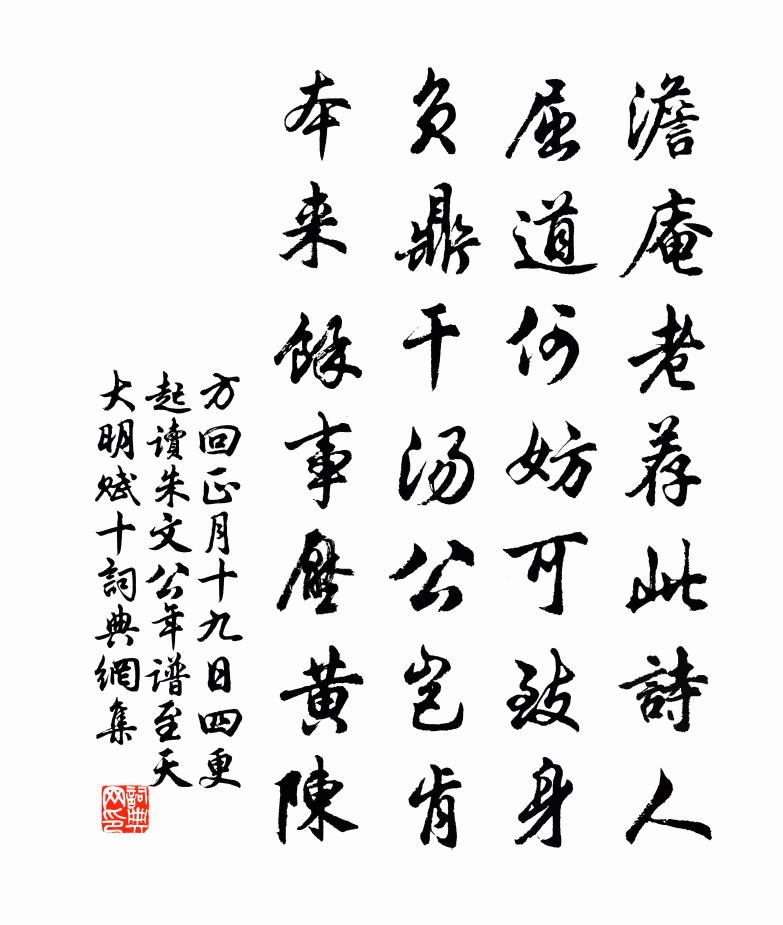 澹庵老荐此詩人
屈道何妨可致身
負鼎干汤公岂肯
本来餘事壓黄陳
方回正月十九日四更
起讀朱文公年谱至天
大明赋十詞典網集
詞典网印